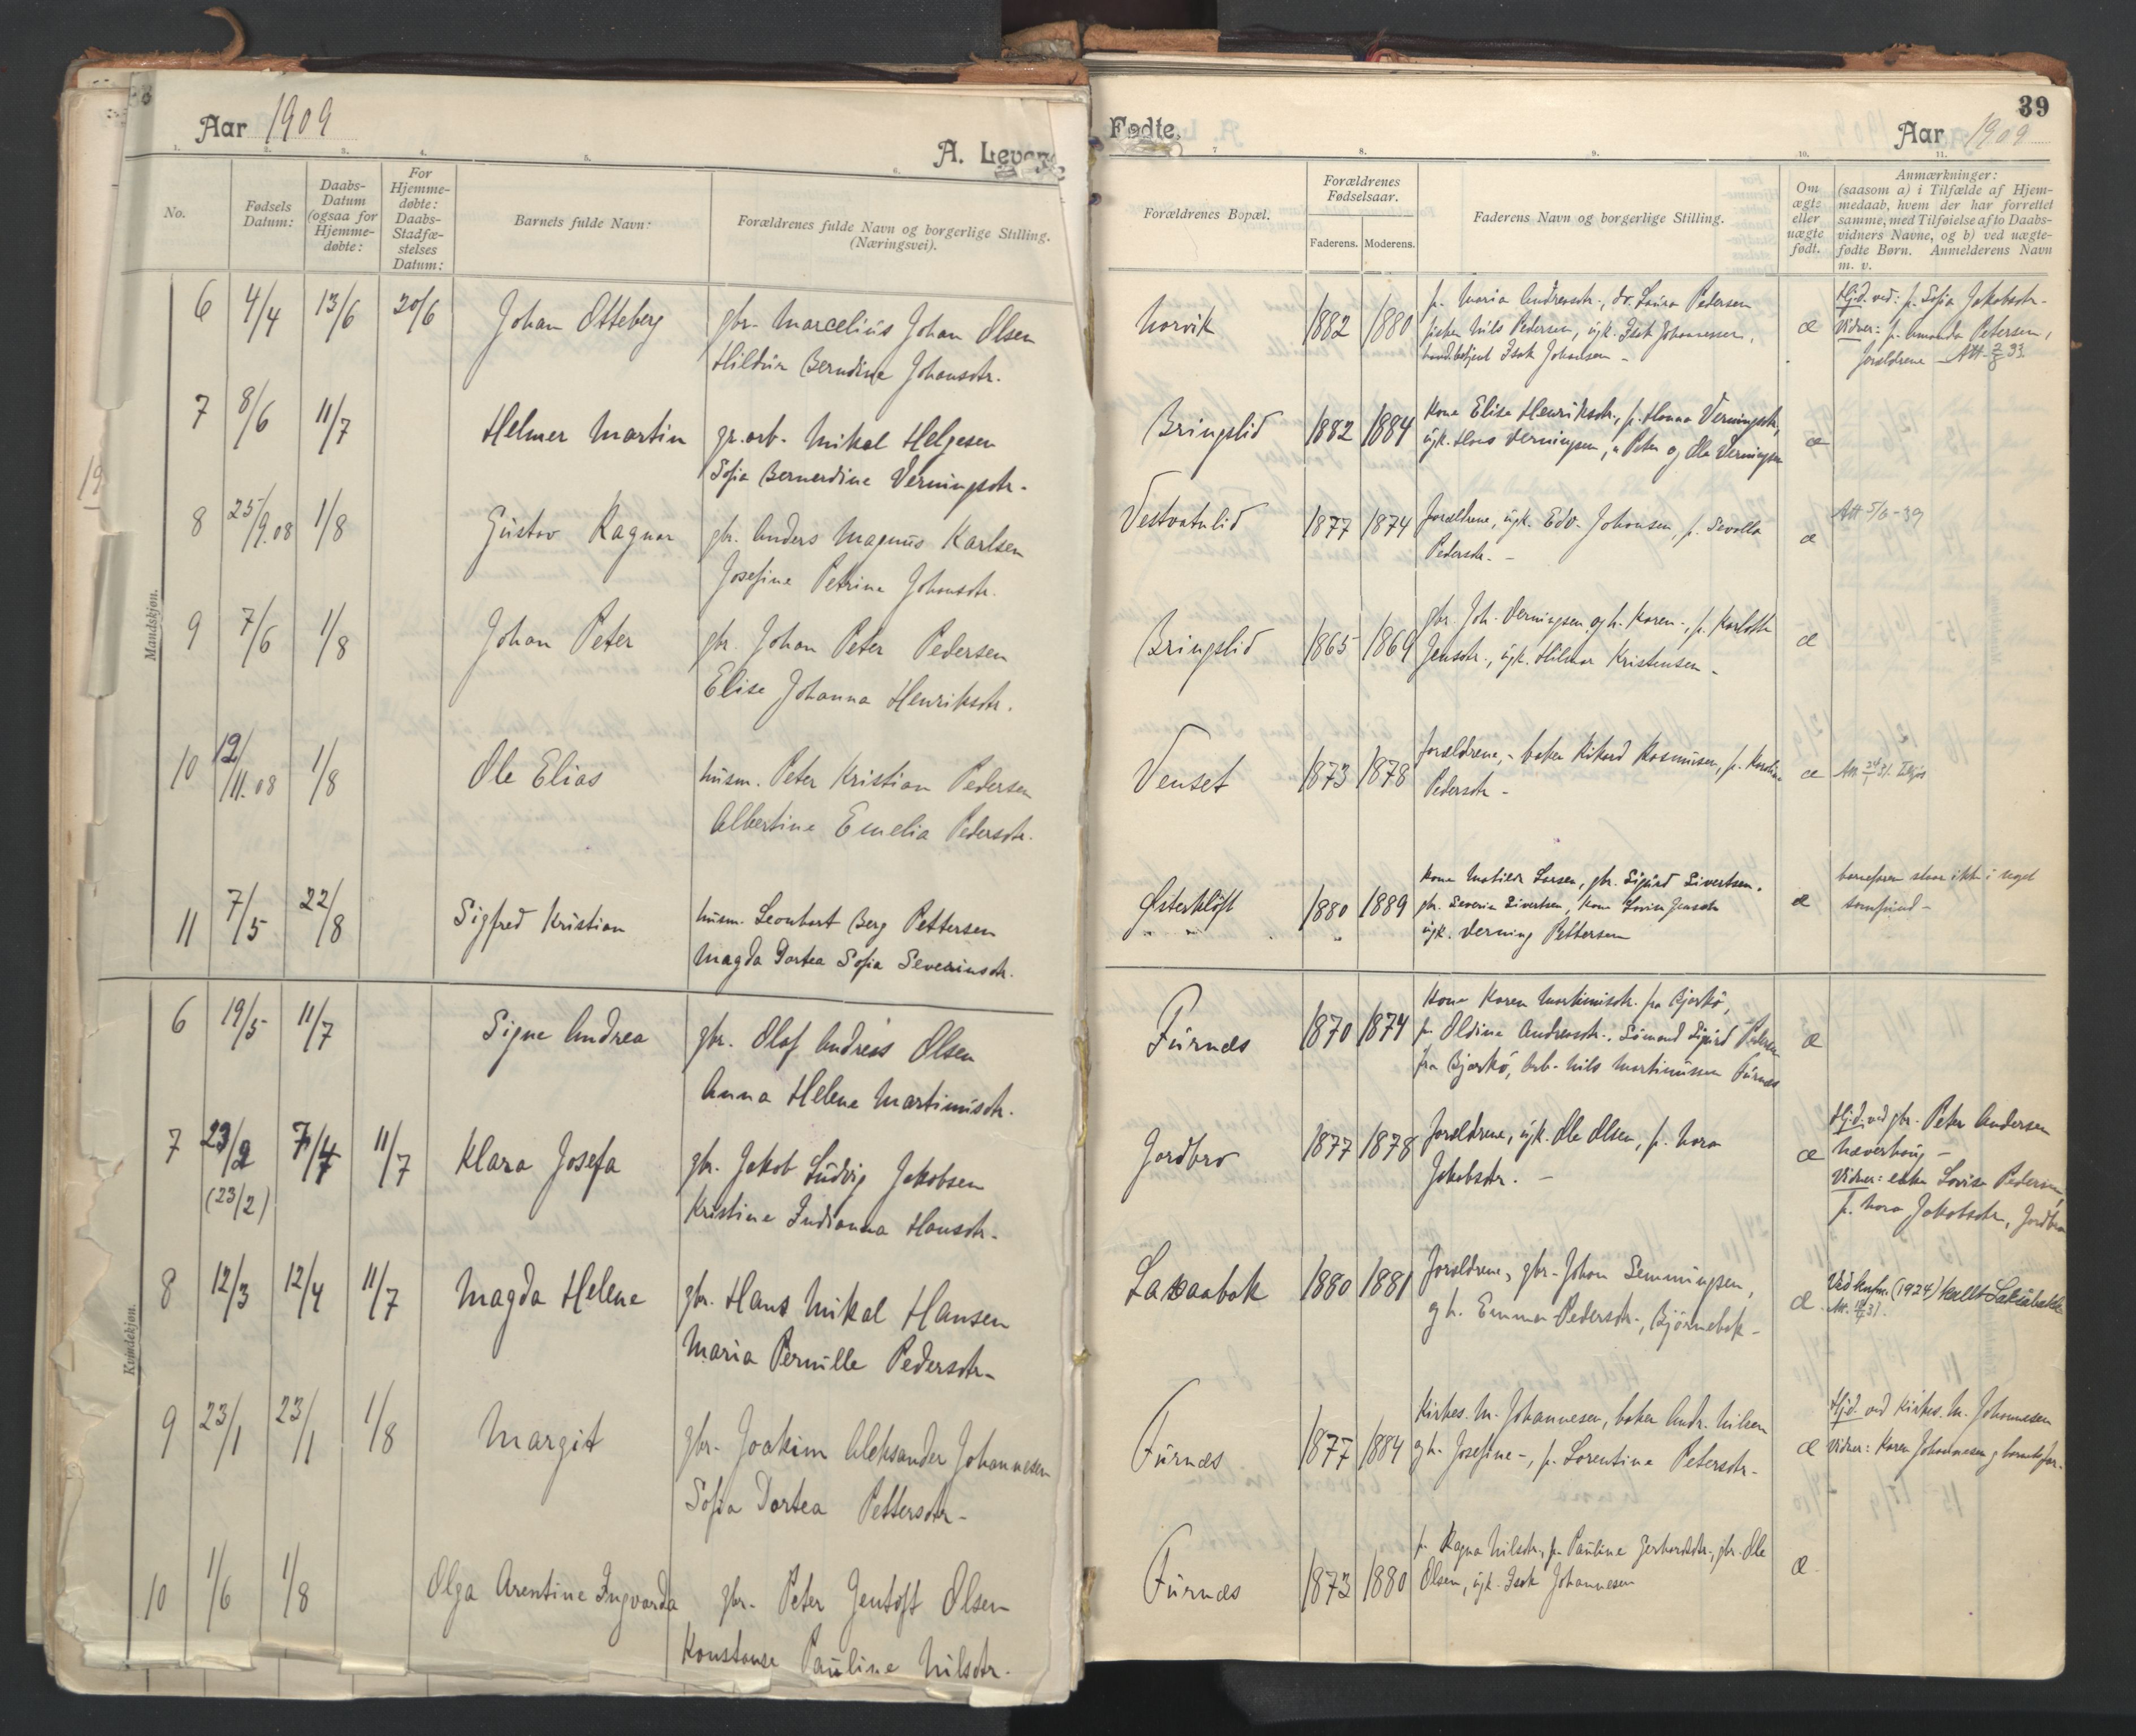 39
Aar 1909
A. Levende
Fødte.
Aar 1909
1. 2. 3. 4. 5. 6. 7 8. 9. 10. 11.
No.
Fødsels Datum:
Daabs-
Datum
(ogsaa for
Hjemme-
døbte:
For
Hjemme-
døbte:
Daabs-
Stadfæ-
stelses
Datum:
Barnets fulde Navn:
Forældrenes fulde Navn og borgerlige Stilling.
(Næringsvei).
Forældrenes Bopæl.
Forældrenes
Fødselsaar.
Faderens. Moderens.
Faderens Navn og borgerlige Stilling.
Om
ægte
eller
uægte
født.
Anmærkninger:
(saasom a) i Tilfælde af Hjem-
medaab, hvem der har forrettet
samme, med Tilføielse af to Daabs-
vidners Navne, og b) ved uægte-
fødte Børn. Anmelderens Navn
m. v.
Mandskjøn.
6 4/4 13/6 20/6 Johan Otteberg gbr. Marcelius Johan Olsen
Hildur Berndine Johansdtr.
Norvik 1882 1880 p. Maria Andreasdtr., do. Laura Pedersen
fisker Nils Pedersen, ugk. Isak Johannessen,
handelsbetjent Isak Johansen -
æ
Hjd. ved: p. Sofia Jakobsdtr.
Vidner: p. Amanda Petersen,
forældrene - Att. 2/8 33.
7 8/6 11/7 Helmer Martin gr.arb. Mikal Helgesen
Sofia Bernerdine Verningsdtr.
Bringslid 1882 1884 Kone Elise Henriksdtr., p. Hanna Verningsdtr,
ugk. Hans Verningsen, " Peter og Ole Verningsen
æ
8 25/9.08 1/8 Gustav Ragnar gbr. Anders Magnus Karlsen
Josefine Petrine Johansdtr.
Vestvatnlid 1877 1874 Forældrene, ugk. Edv. Johansen, p.
Pedersdtr. -
æ
Att 5/6-39
9 7/6 1/8 Johan Peter gbr. Johan Peter Pedersen
Elise Johanna Henriksdtr.
Bringslid 1865 1869 gbr. Joh. Verningsen og h. Karen -, p. Karlotte
Jensdtr., ugk. Hilmar Kristensen -
æ
10 12/11.08 1/8 Ole Elias husm. Peter Kristian Pedersen
Albertine Emelia Pedersdtr.
Venset 1873 1878 Forældrene, - baker Rikard Rasmussen, p. Karoline
Pedersdtr -
æ
11 7/5 22/8 Sigfred Kristian husm. Leonhart Berg Pettersen
Magda Dortea Sofia Severinsdtr.
Østerkløft 1880 1889 Kone Matilde Larsen, gbr. Sigurd Sivertsen,
gbr. Severin Sivertsen, Kone Lovise Jensdtr
ugk. Verning Pettersen
æ
barnefaren staar ikke i noget
samfund -
Kvindekjøn.
6 19/5 11/7 Signe Andrea gbr. Olaf Andreas Olsen
Anna Helene Martinusdtr.
Furnes 1870 1874 Kone Karen Martinusdtr. fra Bjarkö,
p. Oldine Andreasdtr., Sömand Sigurd Pedersen
fra Bjarkö, arb. Nils Martinussen Furnes
æ
7 23/2 7/4 11/7 Klara Josefa gbr. Jakob Ludvig Jakobsen
(23/2)
Kristine Indianna Hansdtr.
Jordbro 1877 1878 Forældrene, ugk. Ole Olsen, p. Nora
Jakobsdtr. -
æ
Hjd. ved gbr. Peter Andersen
Næverhaug -
Vidner: enke Lovise Pedersen,
p. Nora Jakobsdtr, Jordbro
8 12/3 12/4 11/7 Magda Helene gbr. Hans Mikal Hansen
Maria Pernille Pedersdtr.
Laxaabak 1880 1881 Forældrene, gbr. Johan Semmingsen,
g h. Emma Pedersdtr., Björnebak -
æ
Ved konfirm. (1924) kaldt
9 23/1 23/1 1/8 Margit gbr. Joakim Aleksander Johannesen
Sofia Dortea Pettersdtr.
Furnes 1877 1884 Kirkes. M. Johannesen, baker Andr. Nilsen
og h. Josefine -, p. Lorentine Petersdtr.
æ
Hjd. ved Kirkes. M. Johannesen
Vidner: Karen Johannesen og barnets far.
10 1/6 1/8 Olga Arentine Ingvarda gbr. Peter Gentoft Olsen
Konstanse Pauline Nilsdtr.
Furnes 1873 1880 p. Ragna Nilsdtr, p. Pauline Gerhardsdtr., gbr. Ole
Olsen, ugk. Isak Johannesen
æ